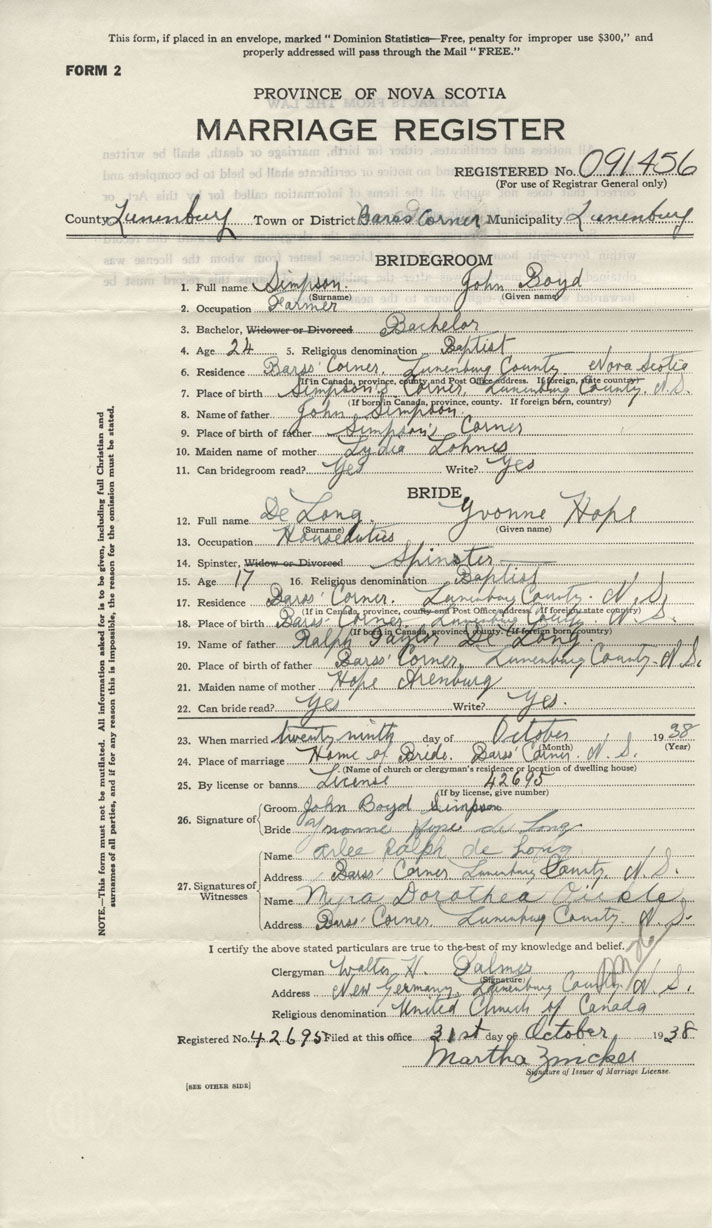 This form, if placed in an envelope, marked "Dominion Statistics—Free, penalty for improper use $300," and
properly addressed will pass through the Mail "FREE."
FORM 2
PROVINCE OF NOVA SCOTIA
MARRIAGE REGISTER
REGISTERED No. 091456
(For use of Registrar General only)
County Lunenburg Town or District Barss Corner Municipality Lunenburg
BRIDEGROOM
1. Full name Simpson. John Boyd
(Surname) (Given name)
2. Occupation Farmer
3. Bachelor, Widower or Divorced Bachelor
4. Age 24 5. Religious denomination Baptist
6. Residence Barss' Corner. Lunenburg County. Nova Scotia
(If in Canada, province, county and Post Office address. If foreign, state country)
7. Place of birth Simpson's Corner, Lunenburg County. N.S.
(If born in Canada, province, county. If foreign born, country)
8. Name of father John Simpson.
9. Place of birth of father Simpson's Corner
10. Maiden name of mother Lydia Lohnes
11. Can bridegroom read? Yes Write? Yes
BRIDE
12. Full name De Long. Yvonne Hope
(Surname) (Given name)
13. Occupation Houseduties
14. Spinster, Widow or Divorced Spinster
15. Age 17 16. Religious denomination Baptist
17. Residence Barss' Corner. Lunenburg County. N.S.
(If in Canada, province, county and Post Office address. If foreign state country)
18. Place of birth Barss' Corner. Lunenburg County. N.S.
(If born in Canada, province, county. If foreign born country)
19. Name of father Ralph Taylor De Long
20. Place of birth of father Barss' Corner, Lunenburg County. N.S.
21. Maiden name of mother Hope Arenburg
22. Can bride read? Yes Write? Yes.
23. When married twenty ninth day of October 1938
(Month) (Year)
24. Place of marriage Home of Bride. Barss' Corner. N.S.
(Name of church or clergyman's residence or location of dwelling house)
25. By license or banns License 42695
(If by license, give number)
26. Signature of Groom John Boyd Simpson
Bride Yvonne Hope de Long
27. Signatures of Witnesses
Name Arlee Ralph de Long
Address Barss' Corner Lunenburg County. N.S.
Name Myra Dorothea
Address Barss' Corner. Lunenburg County. N.S.
I certify the above stated particulars are true to the best of my knowledge and belief.
Clergyman Walter H. Palmer
(Signature)
Address New Germany, Lunenburg County. N.S.
Religious denomination United Church of Canada
Registered No. 42695 Filed at this office 31st day of October 1938
Martha Zwicker
Signature of Issuer of Marriage License.
[SEE OTHER SIDE]
NOTE.—This form must not be mutilated. All information asked for is to be given, including full Christian and
surnames of all parties, and if for any reason this is impossible, the reason for the omission must be stated.